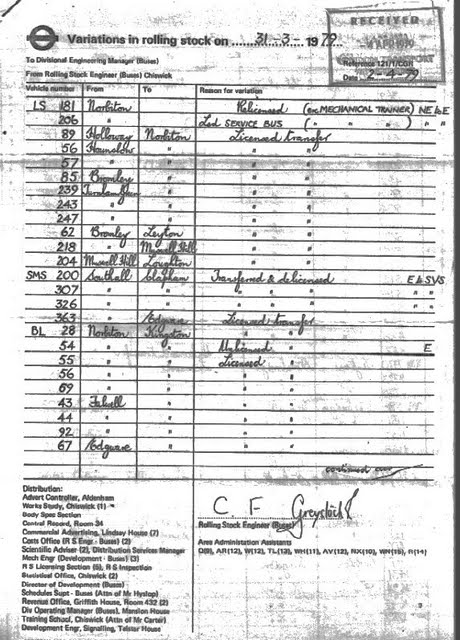 Variations in rolling stock on 31-3- 1979
RECEIVED
To Divisional Engineering Manager (Buses)
From Rolling Stock Engineer (Buses) Chiswick
Reference 121/1/CGR
Date 2-4-79
Vehicle number From To Reason for variation
LS 181 Norbiton Relicensed (ex MECHANICAL TRAINER) NE to E
206 " Lcd SERVICE BUS ( " " ) " "
89 Holloway Norbiton Licensed transfer
56 Hounslow " " "
57 " " " "
85 Bromley " " "
239 Turnham Green " " "
243 " " " "
247 " " " "
62 Bromley Leyton " "
218 " Muswell Hill " "
204 Muswell Hill Loughton " "
SMS 200 Southall Clapham Transferred & delicensed E to SVS
307 " " " " " " "
326 " " " " " " "
363 " Edgware Licensed transfer
BL 28 Norbiton Kingston " "
54 " " Unlicensed " E
55 " " Licensed "
56 " " " "
69 " " " "
43 Fulwell " " "
44 " " " "
92 " " " "
67 Edgware " " "
continued over
Distribution:
Advert Controller, Aldenham
Works Study, Chiswick (1)
Body Spec Section
Control Record, Room 34
Commercial Advertising, Lindsay House (7)
Costs Office (R S Engr - Buses) (2)
Scientific Adviser (2), Distribution Services Manager
Mech Engr (Development - Buses) (3)
R S Licensing Section (5), R S Inspection
Statistical Office, Chiswick (2)
Director of Development (Buses)
Schedules Supt - Buses (Attn of Mr Hyslop)
Revenue Office, Griffith House, Room 432 (2)
Div Operating Manager (Buses), Mansion House
Training School, Chiswick (Attn of Mr Carter)
Development Engr, Signalling, Telstar House
C F
Rolling Stock Engineer (Buses)
Area Administration Assistants
AR(12), W(12), TL(12), WH(11), AV(12), NX(10), WN(15), R(14)